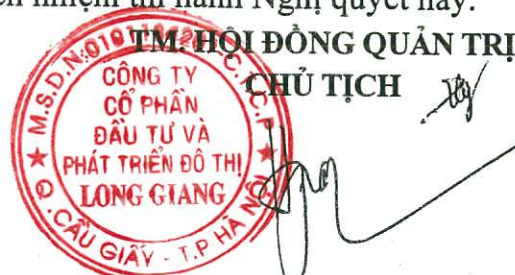 nhiệm thi hành Nghị quyết này.
TM. HỘI ĐỒNG QUẢN TRỊ
CHỦ TỊCH
CÔNG TY
CỔ PHẦN
ĐẦU TƯ VÀ
PHÁT TRIỂN ĐÔ THỊ
LONG GIANG
M.S.D.N:
C.T.C.P
Q. CẦU GIẤY - T.P HÀ NỘI